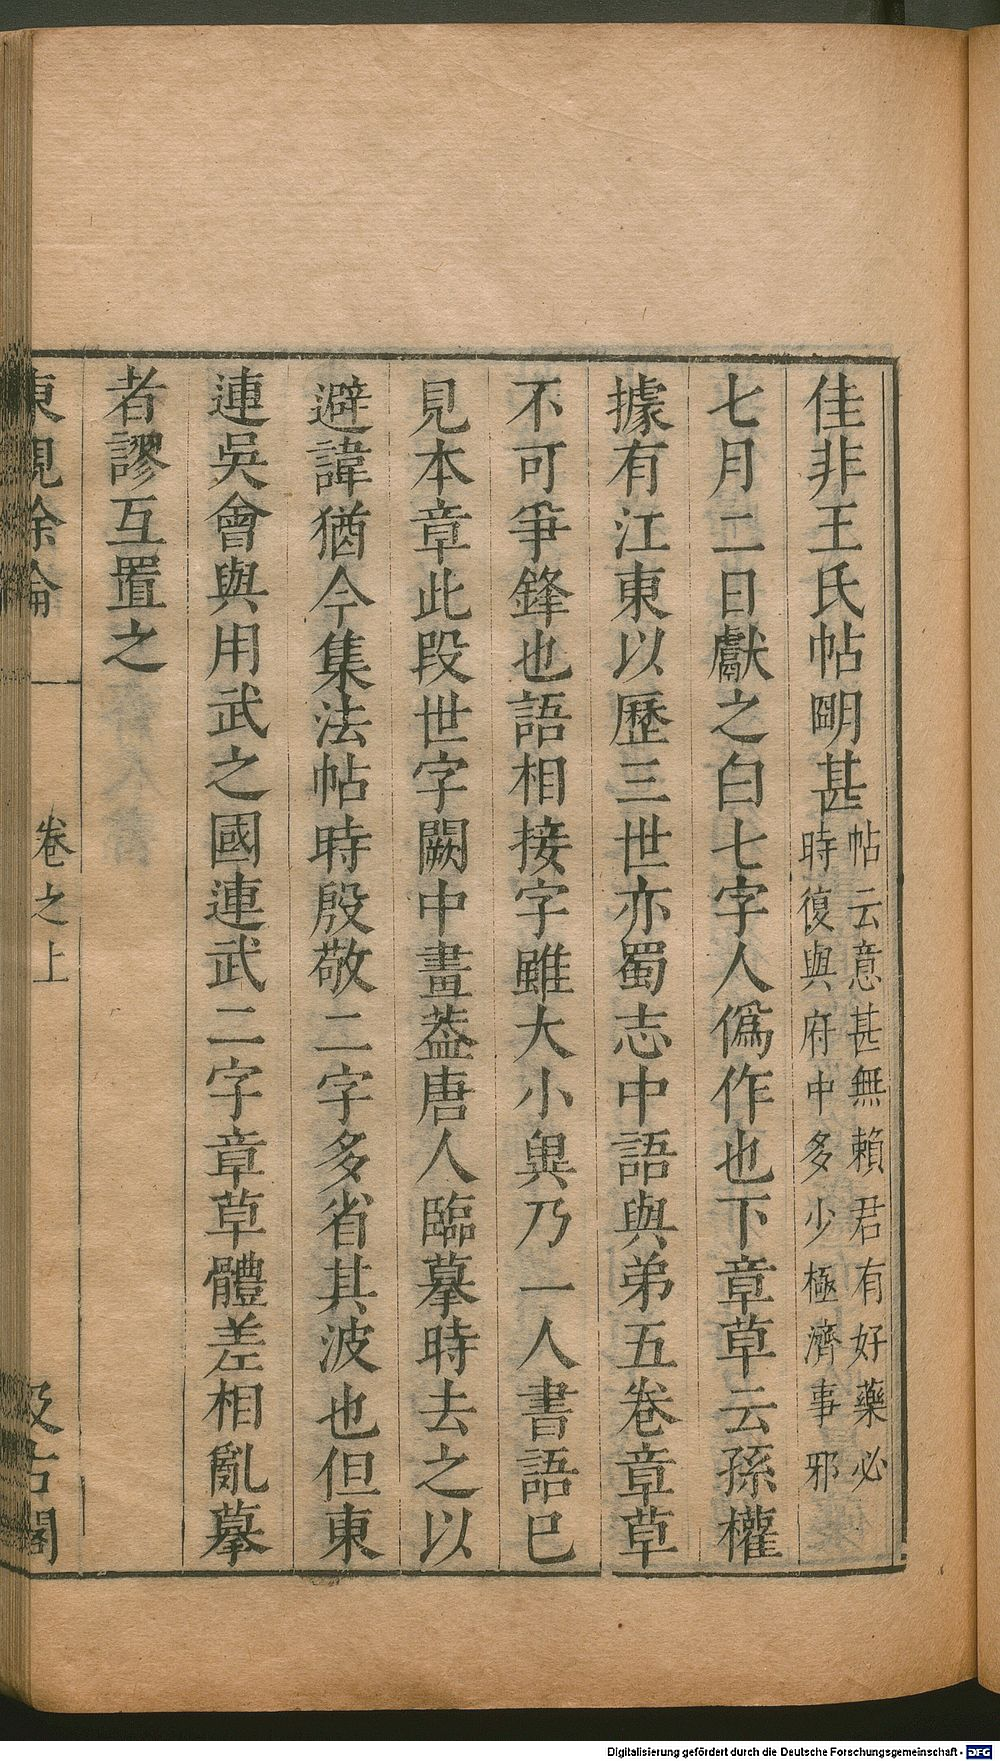 佳非王氏帖朙甚帖云意甚無賴君有好藥必
時復與府中多少極濟事邪
七月二日獻之白七字人僞作也下章草云孫權
據有江東以歷三世亦蜀志中語與弟五卷章草
不可爭鋒也語相接字雖大小異乃一人書語已
見本章此段世字闕中畫葢唐人臨摹時去之以
避諱猶今集法帖時殷敬二字多省其波也但東
連吳會與用武之國連武二字章草體差相亂摹
者謬互置之
東觀餘論 卷之上 汲古閣
Digitalisierung gefördert durch die Deutsche Forschungsgemeinschaft - DFG